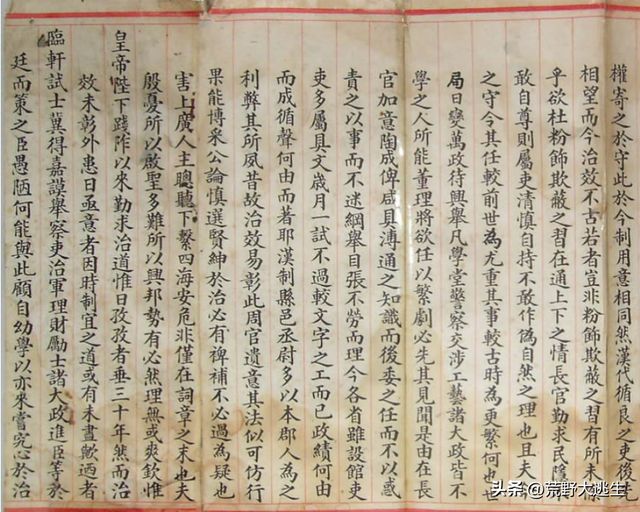 權寄之於守此於今制用意相同然漢代循良之吏後先
相望而今治效不古若者豈非粉飾欺蔽之習有所未除
乎欲杜粉飾欺蔽之習在通上下之情長官勤求民隱
敢自尊則屬吏清慎自持不敢作偽自然之理也且夫
之守令其任較前世為尤重其事較古時為更繁何也世
局日變萬政待興舉凡學堂警察交涉工藝諸大政皆不
學之人所能董理將欲任以繁劇必先其見聞是由在長
官加意陶成俾咸具溥通之知識而後委之任而不以惑
責之以事而不迷綱舉目張不勞而理今各省雖設館吏
吏多屬具文歲月一試不過較文字之工而已政績何由
而成循聲何由而著耶漢制縣邑丞尉多以本郡人為之
利弊其所夙昔故治效易彰此周官遺意其法似可仿行
果能博采公論慎選賢紳於治必有裨補不必過為疑也
害上廣人主聰聽下繫四海安危非僅在詞章之末也夫
殷憂所以啟聖多難所以興邦勢有必然理無或爽欽惟
皇帝陛下踐阼以來勤求治道惟日孜孜者垂三十年然而治
效未彰外患日亟意者因時制宜之道或有未盡歟迺者
臨軒試士冀得嘉謨舉察吏治軍理財勵士諸大政進臣等於
廷而策之臣愚陋何能與此顧自幼學以亦來嘗究心於治
头条@荒野大逃生